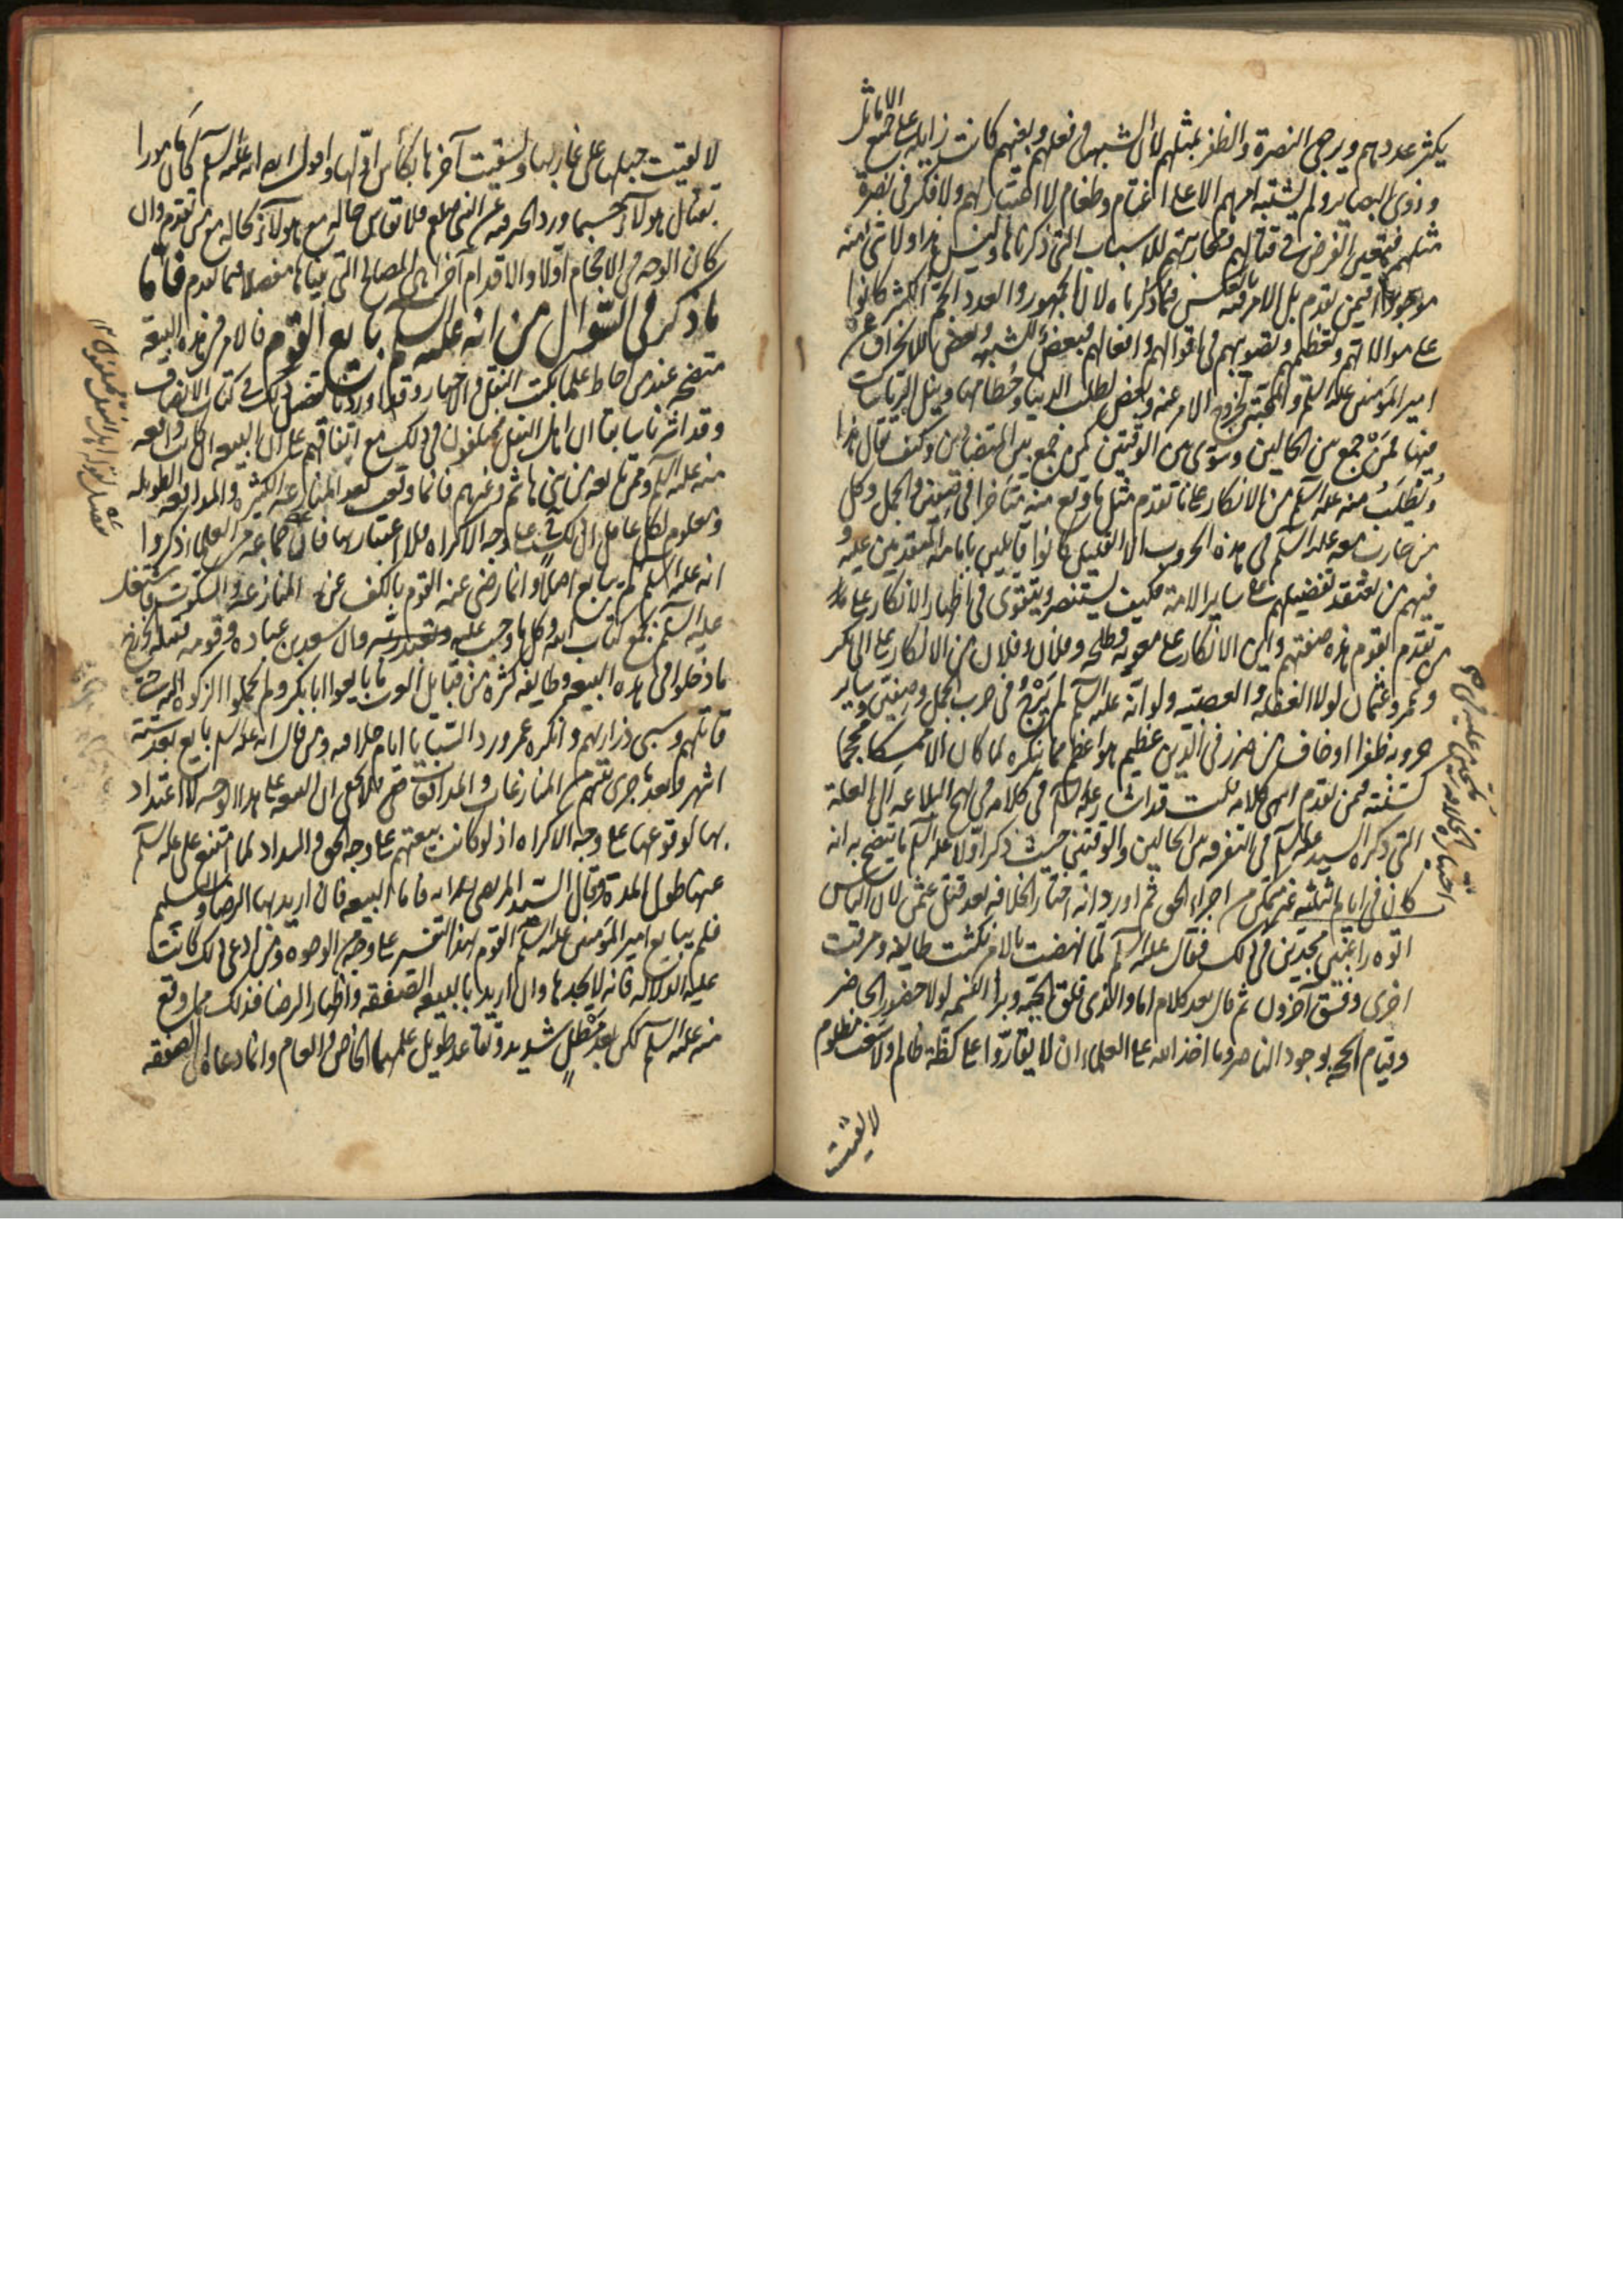 الاماثل
يكثر عددهم ويرجى النصرة والظفر بمثلهم لأن الشبهة فى فعلهم وبغيهم كانت زايلة على جميع
وذوى البصاير ولم يشتبه امرهم الا على اغتام وطغام لا اعتبار بهم ولا فكر فى نصرة
مثلهم فتعين الفرض فى قتالهم ومحاربتهم للاسباب التى ذكرناها وليس هذا ولا شئ منه
موجودا فيمن تقدم بل الامر فيه بالعكس مما ذكرناه لان الجمهور والعدد الجم الكثير كانوا
على موالاتهم وتعظيمهم وتصويبهم فى اقوالهم وافعالهم فبعض للشبهة وبعض للانحراف عن
امير المؤمنين عليه السلم والمحبة لخروج الامر عنه وبعض لطلب الدنيا وحطامها ونيل الرياسات
فيها فمن جمع بين الحالين وسوى بين الوقتين كمن جمع بين المتضادين وكيف يقال هذا
ويطلب منه عليه السلم من الانكار على ما تقدم مثل ما وقع منه متأخرا فى صفين والجمل وكل
من حارب معه عليه السلم فى هذه الحروب الا القليل كانوا قايلين بامامة المتقدمين عليه و
فيهم من يعتقد تفضيلهم على ساير الامة فكيف يستنصر ويتقوى فى اظهار الانكار على
من تقدم القوم هذه صفتهم واين الانكار على معوية وطلحة وفلان وفلان من الانكار على ابى بكر
وعمر وعثمان لولا الغفلة والعصبية ولو انه عليه السلم لم يرج فى حرب الجمل وصفين وساير
حروبه ظفرا او خاف من ضرر فى الدين عظيم هو اعظم مما ينكره لما كان الا ممسكا محجما
كسنته فيمن تقدم انتهى كلامه قلت قد اشار عليه السلم فى كلامه فى نهج البلاغة الى العلة
التى ذكره السيد عليه السلم فى التفرقة بين الحالين والوقتين حيث ذكر اولا عليه السلم ما يتضح به انه
كان فى ايام الثلثة غير متمكن من اجراء الحق ثم اورد انه اختار الخلافة بعد قتل عثمن لان الناس
اتوه راغبين مجدين فى ذلك فقال عليه السلم لما نهضت بالامر نكثت طايفة ومرقت
اخرى وفسق آخرون ثم قال بعد كلام اما والذى فلق الحبة وبرأ النسمة لولا حضور الحاضر
وقيام الحجة بوجود الناصر وما اخذ الله على العلماء ان لا يقاروا على كظة ظالم ولا سغب مظلوم
لالقيت
لالقيت حبلها على غاربها ولسقيت آخرها بكأس اولها واقول ايضا انه عليه السلم كان مامورا
بقتال هولاء حسبما ورد الخبر فيه عن النبى صلعم فلا تقاس حاله مع هولاء بحاله مع من تقدم وان
كان الوجه فى الاحجام اولا والاقدام آخرا هى المصالح التى بيناها مفصلا فيما تقدم فاما
ما ذكر فى السؤال من انه عليه السلم بايع القوم فالامر فى هذه البيعة
متضح عند من احاط علما بكتب النقل والاخبار وقد اوردنا تفصيل ذلك فى كتاب الانصاف
وقد اشرنا سابقا ان اهل النقل مختلفون فى ذلك مع اتفاقهم على ان البيعة ان كانت واقعة
منه عليه السلم وممن تابعه من بنى هاشم وغيرهم فانما وقعت بعد المنازعة الكثيرة والمدافعة الطويلة
ومعلوم لكل عاقل ان ذلك ليس الا على وجه الاكراه فلا اعتبار بها فان جماعة من العلماء ذكروا
انه عليه السلم لم يبايع اصلا وانما رضى عنه القوم بالكف عن المنازعة والسكوت واشتغل
عليه السلم بجمع كتاب الله وكل ما وجب عليه وقال سعد بن عبادة وقومه قبيلة الخزرج
ما دخلوا فى هذه البيعة وطايفة كثيرة من قبايل العرب ما بايعوا ابابكر ولم يحملوا الزكوة اليه حتى
قاتلهم وسبى ذراريهم وانكره عمر ورد السبايا ايام خلافته ومن قال انه عليه السلم بايع بعد ستة
اشهر وبعد ما جرى بينهم من المنازعات والمدافعات فلا يخفى ان البيعة على هذا الوجه لا اعتداد
بها لوقوعها على وجه الاكراه اذ لو كانت بيعتهم على وجه الحق والسداد لما امتنع على عليه السلم
عنها طول المدة وقال السيد المرتضى فاما البيعة فان اريد بها الرضا والتسليم
فلم يبايع امير المؤمنين عليه السلم القوم بهذا التفسير على وجه من الوجوه ومن ادعى ذلك كانت
عليه الدلالة فانه لا يجدها وان اريد بالبيعة الصفقة واظهار الرضا فذلك مما وقع
منه عليه السلم لكن بعد مطل شديد وتقاعد طويل علمهما الخاص والعام وانما دعاه الى الصفقة